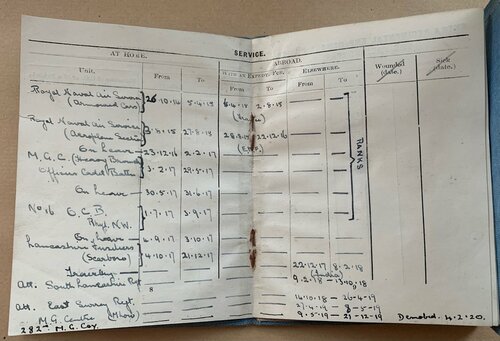 SERVICE.
AT HOME. ABROAD.
WITH AN EXPEDY. FCE. ELSEWHERE.
Unit. From To From To From To Wounded (date.) Sick (date.)
Royal Naval Air Service
(Armoured Cars) 26.10.14 5.4.15 6.4.15 2.8.15
Royal Naval Air Service
(Aeroplane Section) 3.8.15 27.8.15 28.8.15 22.12.16
On leave 23.12.16 2.2.17
M.G.C. (Heavy Branch)
Officer Cadet Battn 3.2.17 29.5.17
On leave 30.5.17 31.6.17
RANKS
No 16 O.C.B.
Rhyl. N.W. 1.7.17 3.9.17
On leave 4.9.17 3.10.17
Lancashire Fusiliers
(Scarboro) 4.10.17 21.12.17
Travelling 22.12.17 8.2.18
(India)
Att. South Lancashire Regt 9.2.18 13.10.18
8
Att. East Surrey Regt. 14.10.18 26.4.19
M.G. Centre (Mhow) 27.4.19 8.5.19
282nd M.G. Coy. 9.5.19 21.12.19 Demobed. 4.2.20.